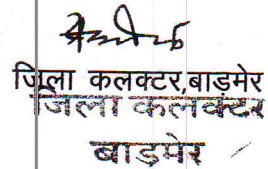 जिला कलक्टर,बाडमेर
जिला कलक्टर
बाड़मेर